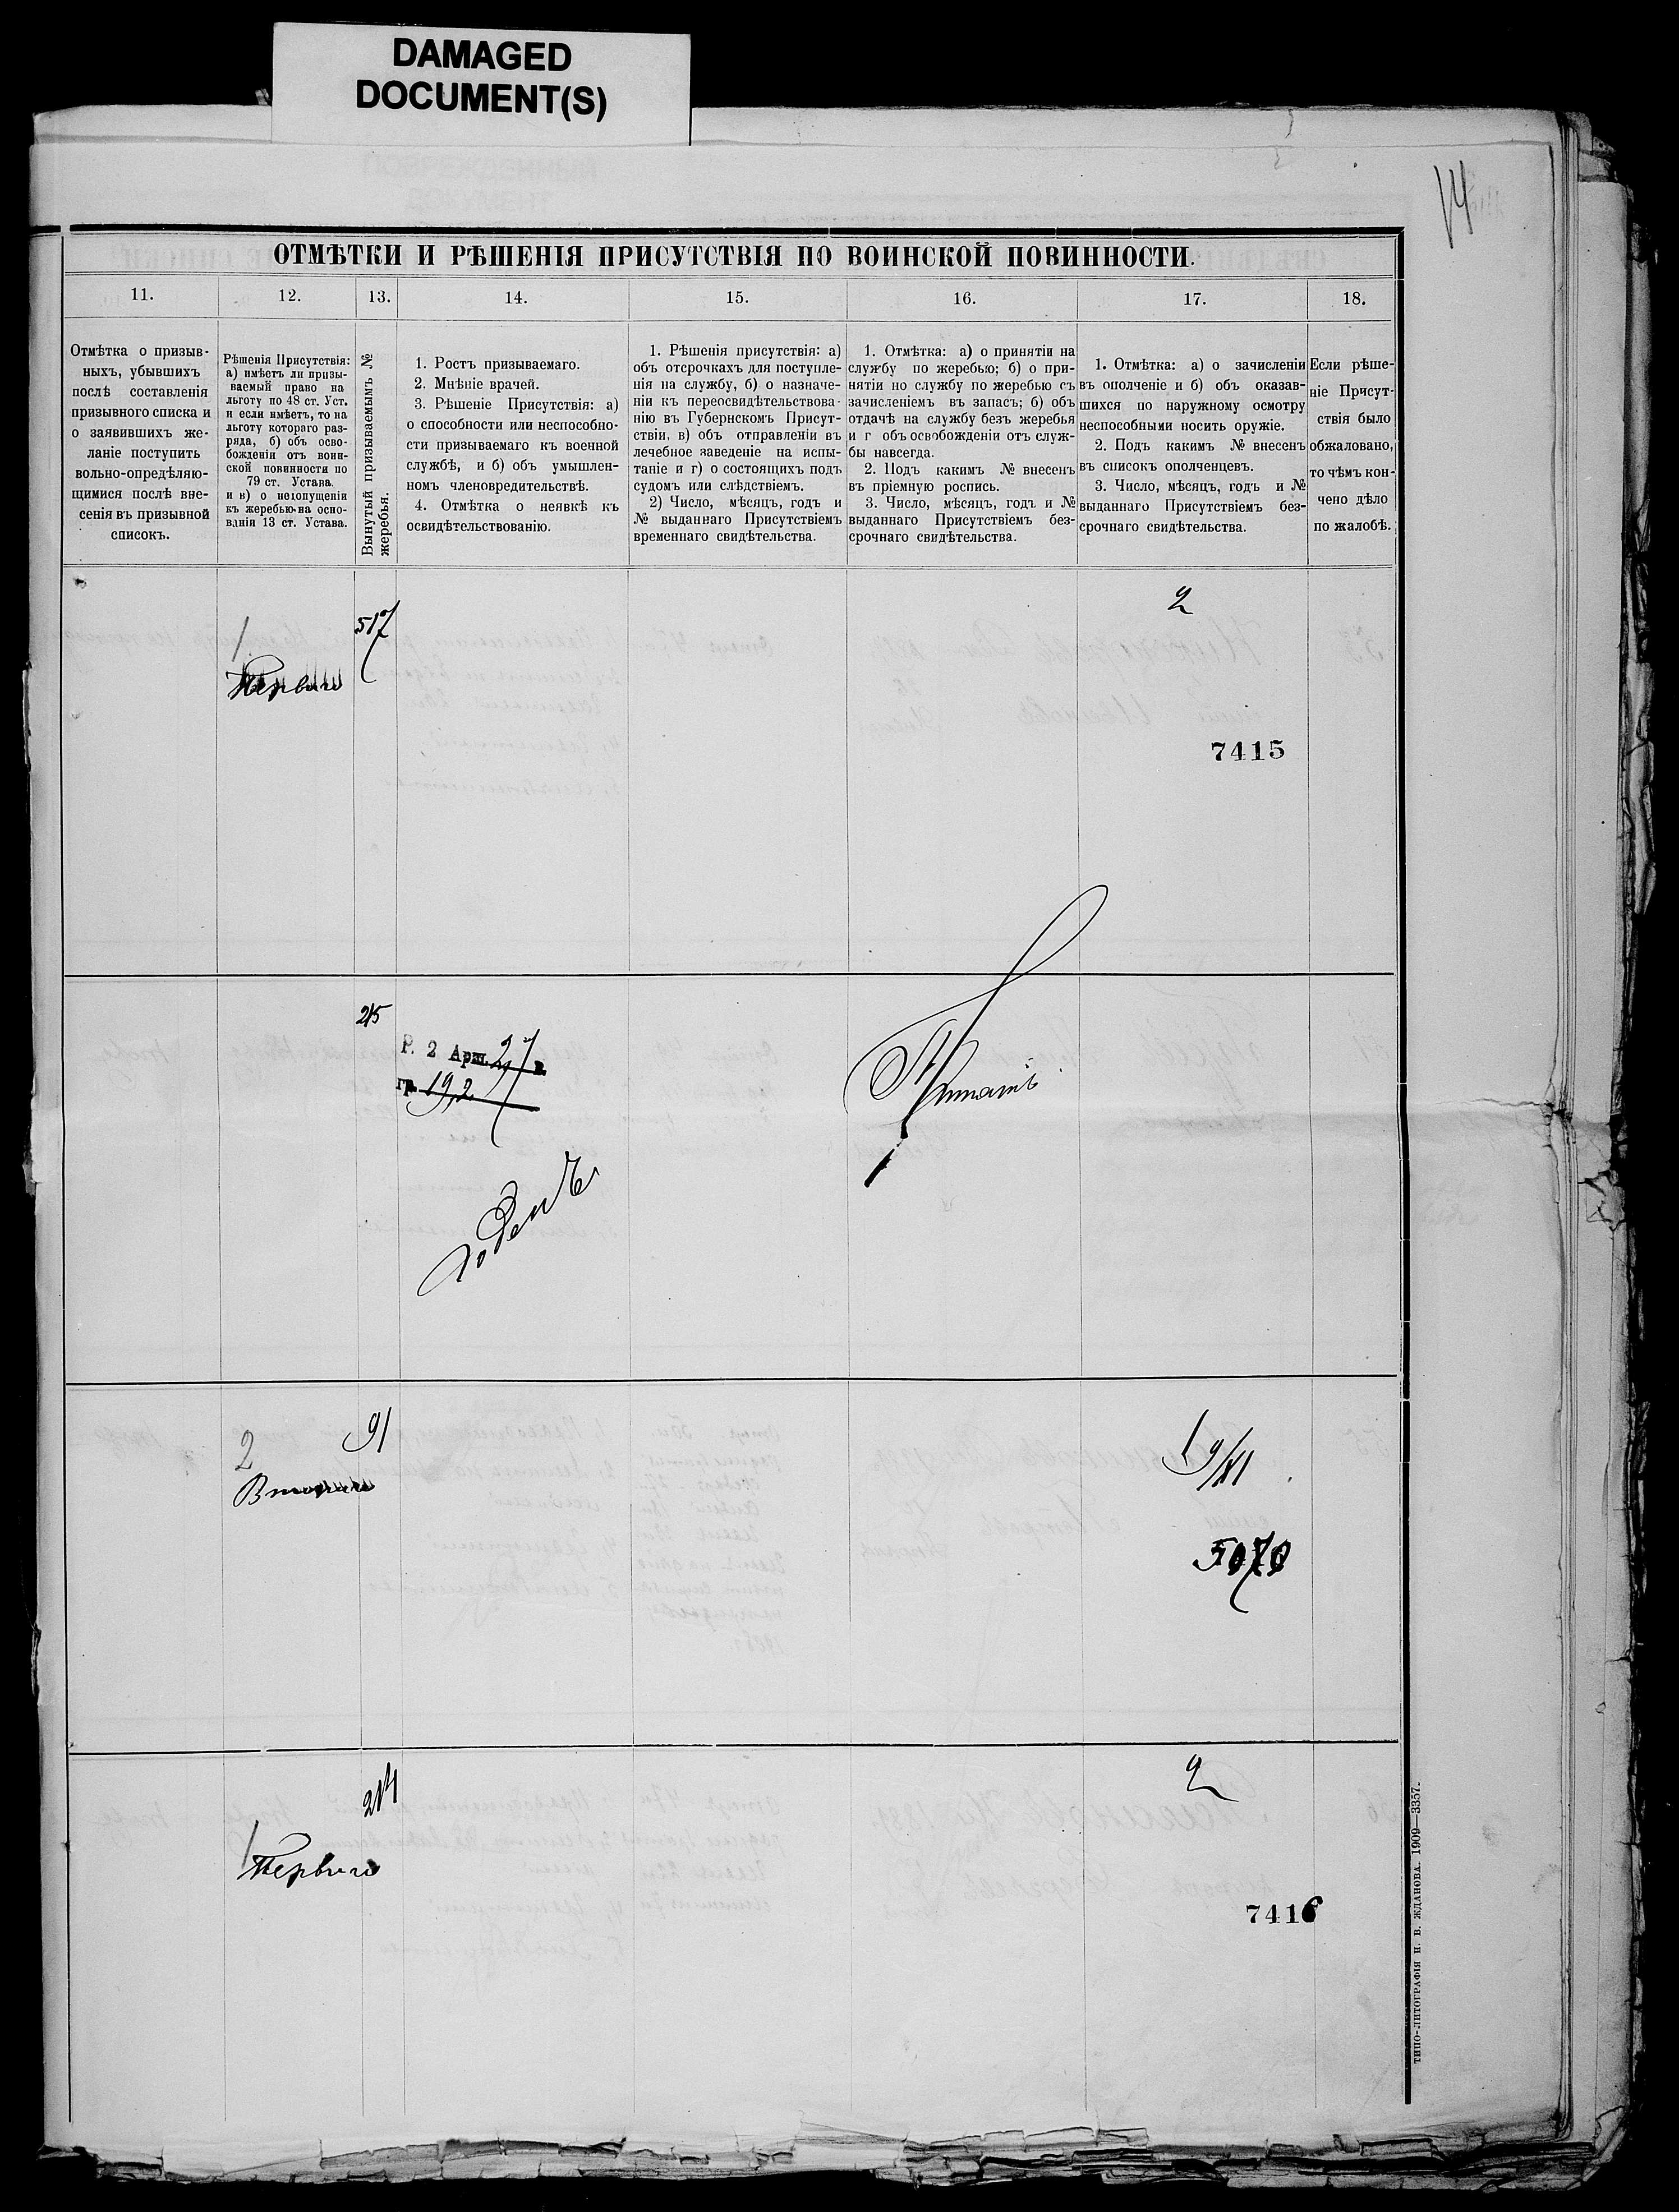 DAMAGED
DOCUMENT(S)
14
ОТМѢТКИ И РѢШЕНІЯ ПРИСУТСТВІЯ ПО ВОИНСКОЙ ПОВИННОСТИ.
11.
12.
13.
14.
15.
16.
17.
18.
Отмѣтка о призыв-
ныхъ, убывшихъ
послѣ составленія
призывного списка и
о заявившихъ же-
ланіе поступить
вольно-опредѣляю-
щимися послѣ вне-
сенія въ призывной
списокъ.
Рѣшенія Присутствія:
а) имѣетъ ли призы-
ваемый право на
льготу по 48 ст. Уст.
и если имѣетъ, то на
льготу котораго раз-
ряда, б) объ осво-
божденіи отъ воин-
ской повинности по
79 ст. Устава.
и в) о недопущеніи
къ жеребью на осно-
ваніи 13 ст. Устава.
Вынутый призываемымъ №
жеребья.
1. Ростъ призываемаго.
2. Мнѣніе врачей.
3. Рѣшеніе Присутствія: а)
о способности или неспособно-
сти призываемаго къ военной
службѣ, и б) объ умышлен-
номъ членовредительствѣ.
4. Отмѣтка о неявкѣ къ
освидѣтельствованію.
1. Рѣшенія присутствія: а)
объ отсрочкахъ для поступле-
нія на службу, б) о назначе-
ніи къ переосвидѣтельствова-
нію въ Губернскомъ Присут-
ствіи, в) объ отправленіи въ
лечебное заведеніе на испы-
таніе и г) о состоящихъ подъ
судомъ или слѣдствіемъ.
2) Число, мѣсяцъ, годъ и
№ выданнаго Присутствіемъ
временнаго свидѣтельства.
1. Отмѣтка: а) о принятіи на
службу по жеребью; б) о при-
нятіи но службу по жеребью съ
зачисленіемъ въ запасъ; б) объ
отдачѣ на службу безъ жеребья
и г объ освобожденіи отъ служ-
бы навсегда.
2. Подъ какимъ № внесенъ
въ пріемную роспись.
3. Число, мѣсяцъ, годъ и №
выданнаго Присутствіемъ без-
срочнаго свидѣтельства.
1. Отмѣтка: а) о зачисленіи
въ ополченіе и б) объ оказав-
шихся по наружному осмотру
неспособными носить оружіе.
2. Подъ какимъ № внесенъ
въ списокъ ополченцевъ.
3. Число, мѣсяцъ, годъ и №
выданнаго Присутствіемъ без-
срочнаго свидѣтельства.
Если рѣше-
ніе Присут-
ствія было
обжаловано,
то чѣмъ кон-
чено дѣло
по жалобѣ.
1
Перваго
517
2
7415
215
Р. 2 Арш. 2 4 в.
гр. 19,2
Годенъ
Принятъ
2
Втораго
91
1 9/XI
5070
1
Перваго
214
2
7416
ТИПО-ЛИТОГРАФІЯ Н. В. ЖДАНОВА. 1909—3357.